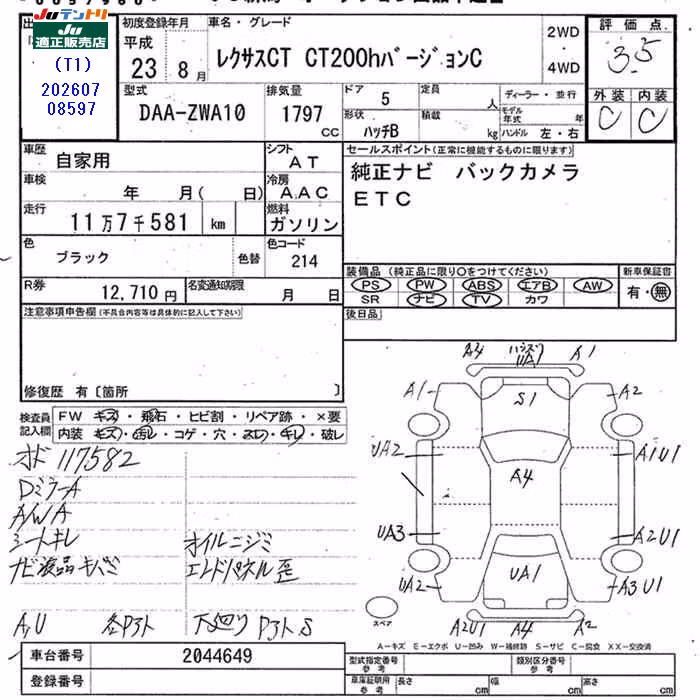 JUテントリ
JU適正販売店
(T1)
202607
08597
初度登録年月
平成
23 8月
車名・グレード
レクサスCT CT200hバージョンC
2WD
・
4WD
評価点
3.5
外装 内装
C C
型式
DAA-ZWA10
排気量
1797
CC
ドア 5
定員 人
形状
ハッチB
積載 kg
ディーラー・並行
モデル年式 年
ハンドル 左・右
車歴
自家用
シフト
AT
車検
年 月( 日)
冷房
AAC
走行
11万7千581 km
燃料
ガソリン
色
ブラック
色替
色コード
214
R券
12,710円
名変通知期限
月 日
セールスポイント(正常に機能するものに限ります)
純正ナビ バックカメラ
ETC
装備品 (純正品に限り○をつけてください)
新車保証書
PS PW ABS エアB AW
有・無
SR ナビ TV カワ
後日品
注意事項申告欄(不具合内容等は具体的に記入して下さい)
修復歴 有〔箇所 〕
検査員
記入欄
FW キズ・飛石・ヒビ割・リペア跡・×要
内装 キズ・汚レ・コゲ・穴・スレ・キレ・破レ
オド 117582
Dミラーà
A/W A
シートキレ
オイルニジミ
ナビ液晶キバミ
エンドパネル歪
A,U 各Pアト 下廻りPアトS
A4
A1
A1
S1
A2
UA2
A4
A1U1
UA3
A2U1
UA2
UA1
A3U1
スペア
A2U1 A4 A2
A－キズ E－エクボ U－凹み W－補修跡 S－サビ C－腐食 XX－交換済
車台番号
2044649
登録番号
型式指定番号
参考
類別区分番号
参考
車庫証明用
参考
長さ cm 幅 cm 高さ cm